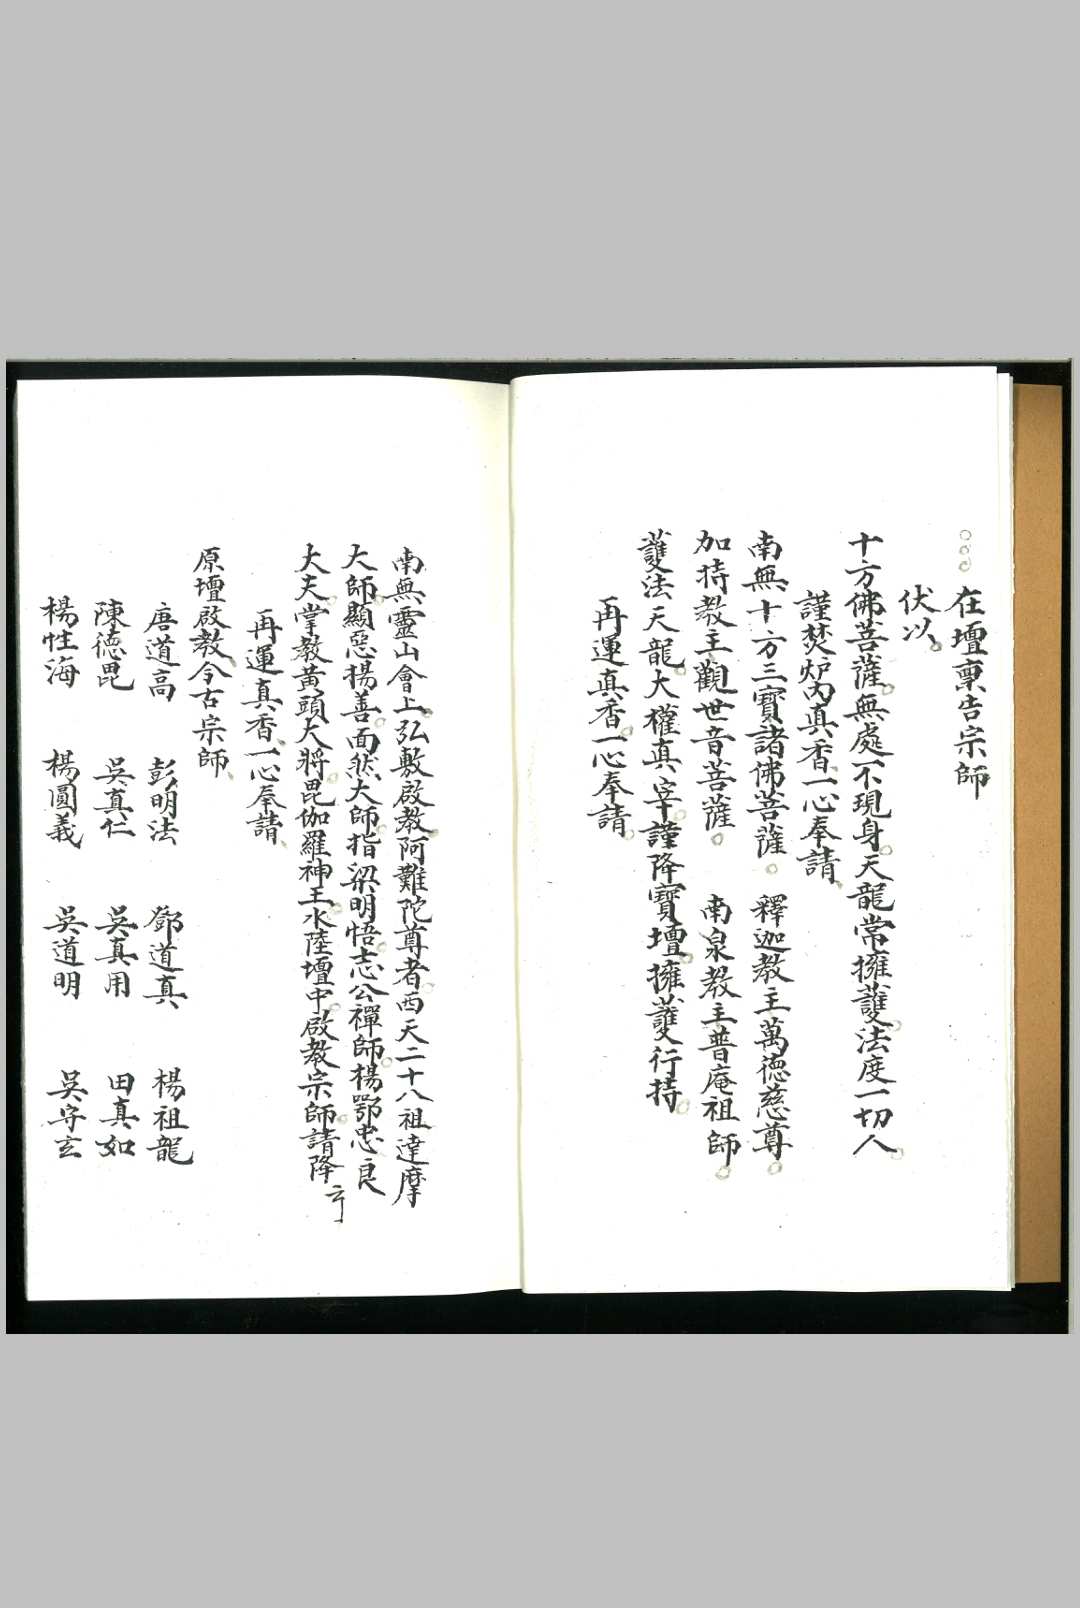 ○○○在壇稟告宗師
伏以。
十方佛菩薩。無處不現身。天龍常擁護。法度一切人。
謹焚炉内真香、一心奉請、
南無十方三寶諸佛菩薩。 釋迦教主萬德慈尊。
加持教主觀世音菩薩。 南泉教主普庵祖師。
護法天龍。大權真宰。謹降寶壇。擁護行持。
再運真香。一心奉請。
南無靈山會上。弘敷啟教。阿難陀尊者。西天二十八祖達摩
大師。顯惡揚善。面然大師。指梁明悟。志公禪師。楊鄂忠良
大夫。掌教黃頭大將。毘伽羅神王。水陸壇中。啟教宗師。請降
再運真香、一心奉請、
原壇啟教、今古宗師、
唐道高 彭明法 鄧道真 楊祖龍
陳德毘 吳真仁 吳真用 田真如
楊性海 楊圓義 吳道明 吳守玄